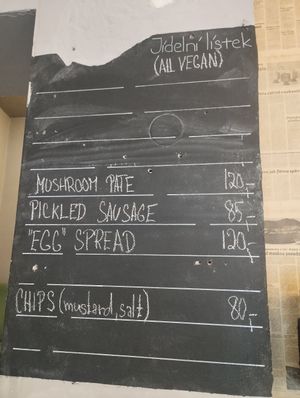 Jídelní lístek
(ALL VEGAN)
MUSHROOM PATE 120,-
PICKLED SAUSAGE 85,-
"EGG" SPREAD 120,-
CHIPS (mustard, salt) 80,-